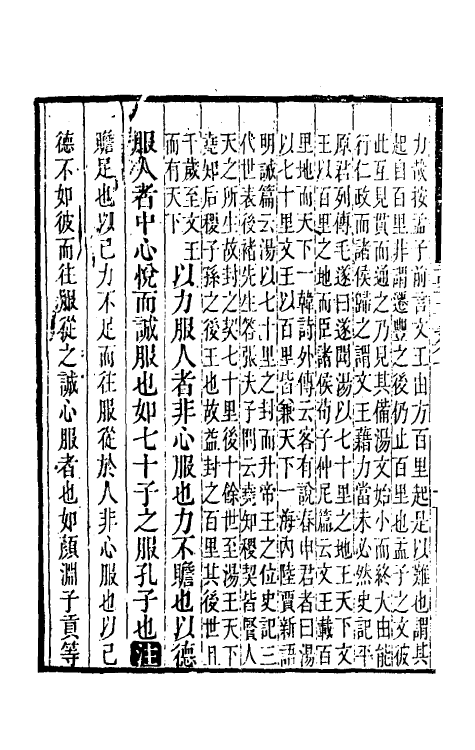 力故按孟子前言文王由方百里起是以難也謂其
起自百里非謂遷豐之後仍止百里也孟子之文彼
此互見貫而通之乃見其備湯文始小而終大由能
行仁政而諸侯歸之謂文王藉力當未必然史記平
原君列傳毛遂曰遂聞湯以七十里之地王天下文
王以百里之地而臣諸侯荀子仲尼篇云文王載百
里地而天下一韓詩外傳云客有說春申君者曰湯
以七十里文王以百里皆兼天下一海內陸賈新語
明誠篇云湯以七十里之封而升帝王之位史記三
代世表後褚先生答張夫子問云堯知稷契皆賢人
天之所生故封之契七十里後十餘世至湯王天下
堯知后稷子孫之後王也故益封之百里其後世且
千歲至文王
而有天下
以力服人者非心服也力不贍也以德
服人者中心悅而誠服也如七十子之服孔子也注
贍足也以己力不足而往服從於人非心服也以己
德不如彼而往服從之誠心服者也如顏淵子貢等